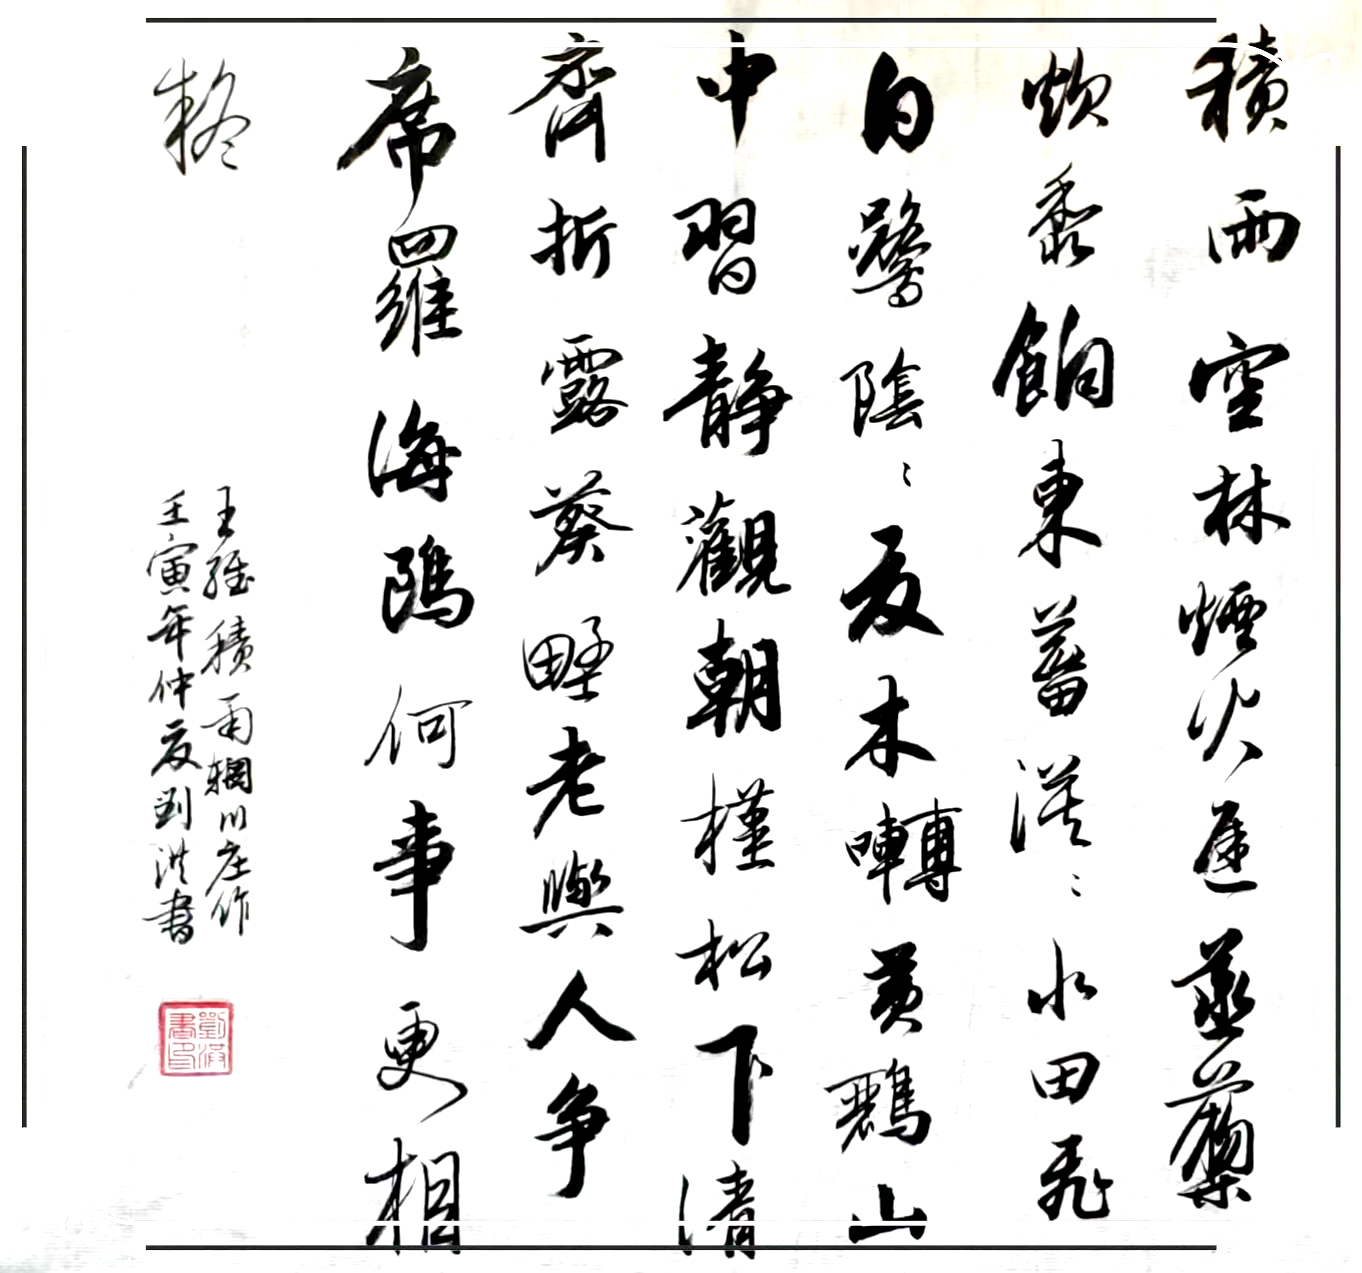 積雨空林煙火遲蒸藜
炊黍餉東菑漠〻水田飛
白鷺陰〻夏木囀黃鸝山
中習靜觀朝槿松下清
齊折露葵野老與人争
席羅海鷗何事更相
疑
王維積雨輞川庄作
壬寅年仲夏劉洪書
劉洪書印